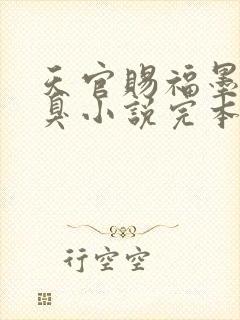 天官賜福墨
臭小說完本
行空空